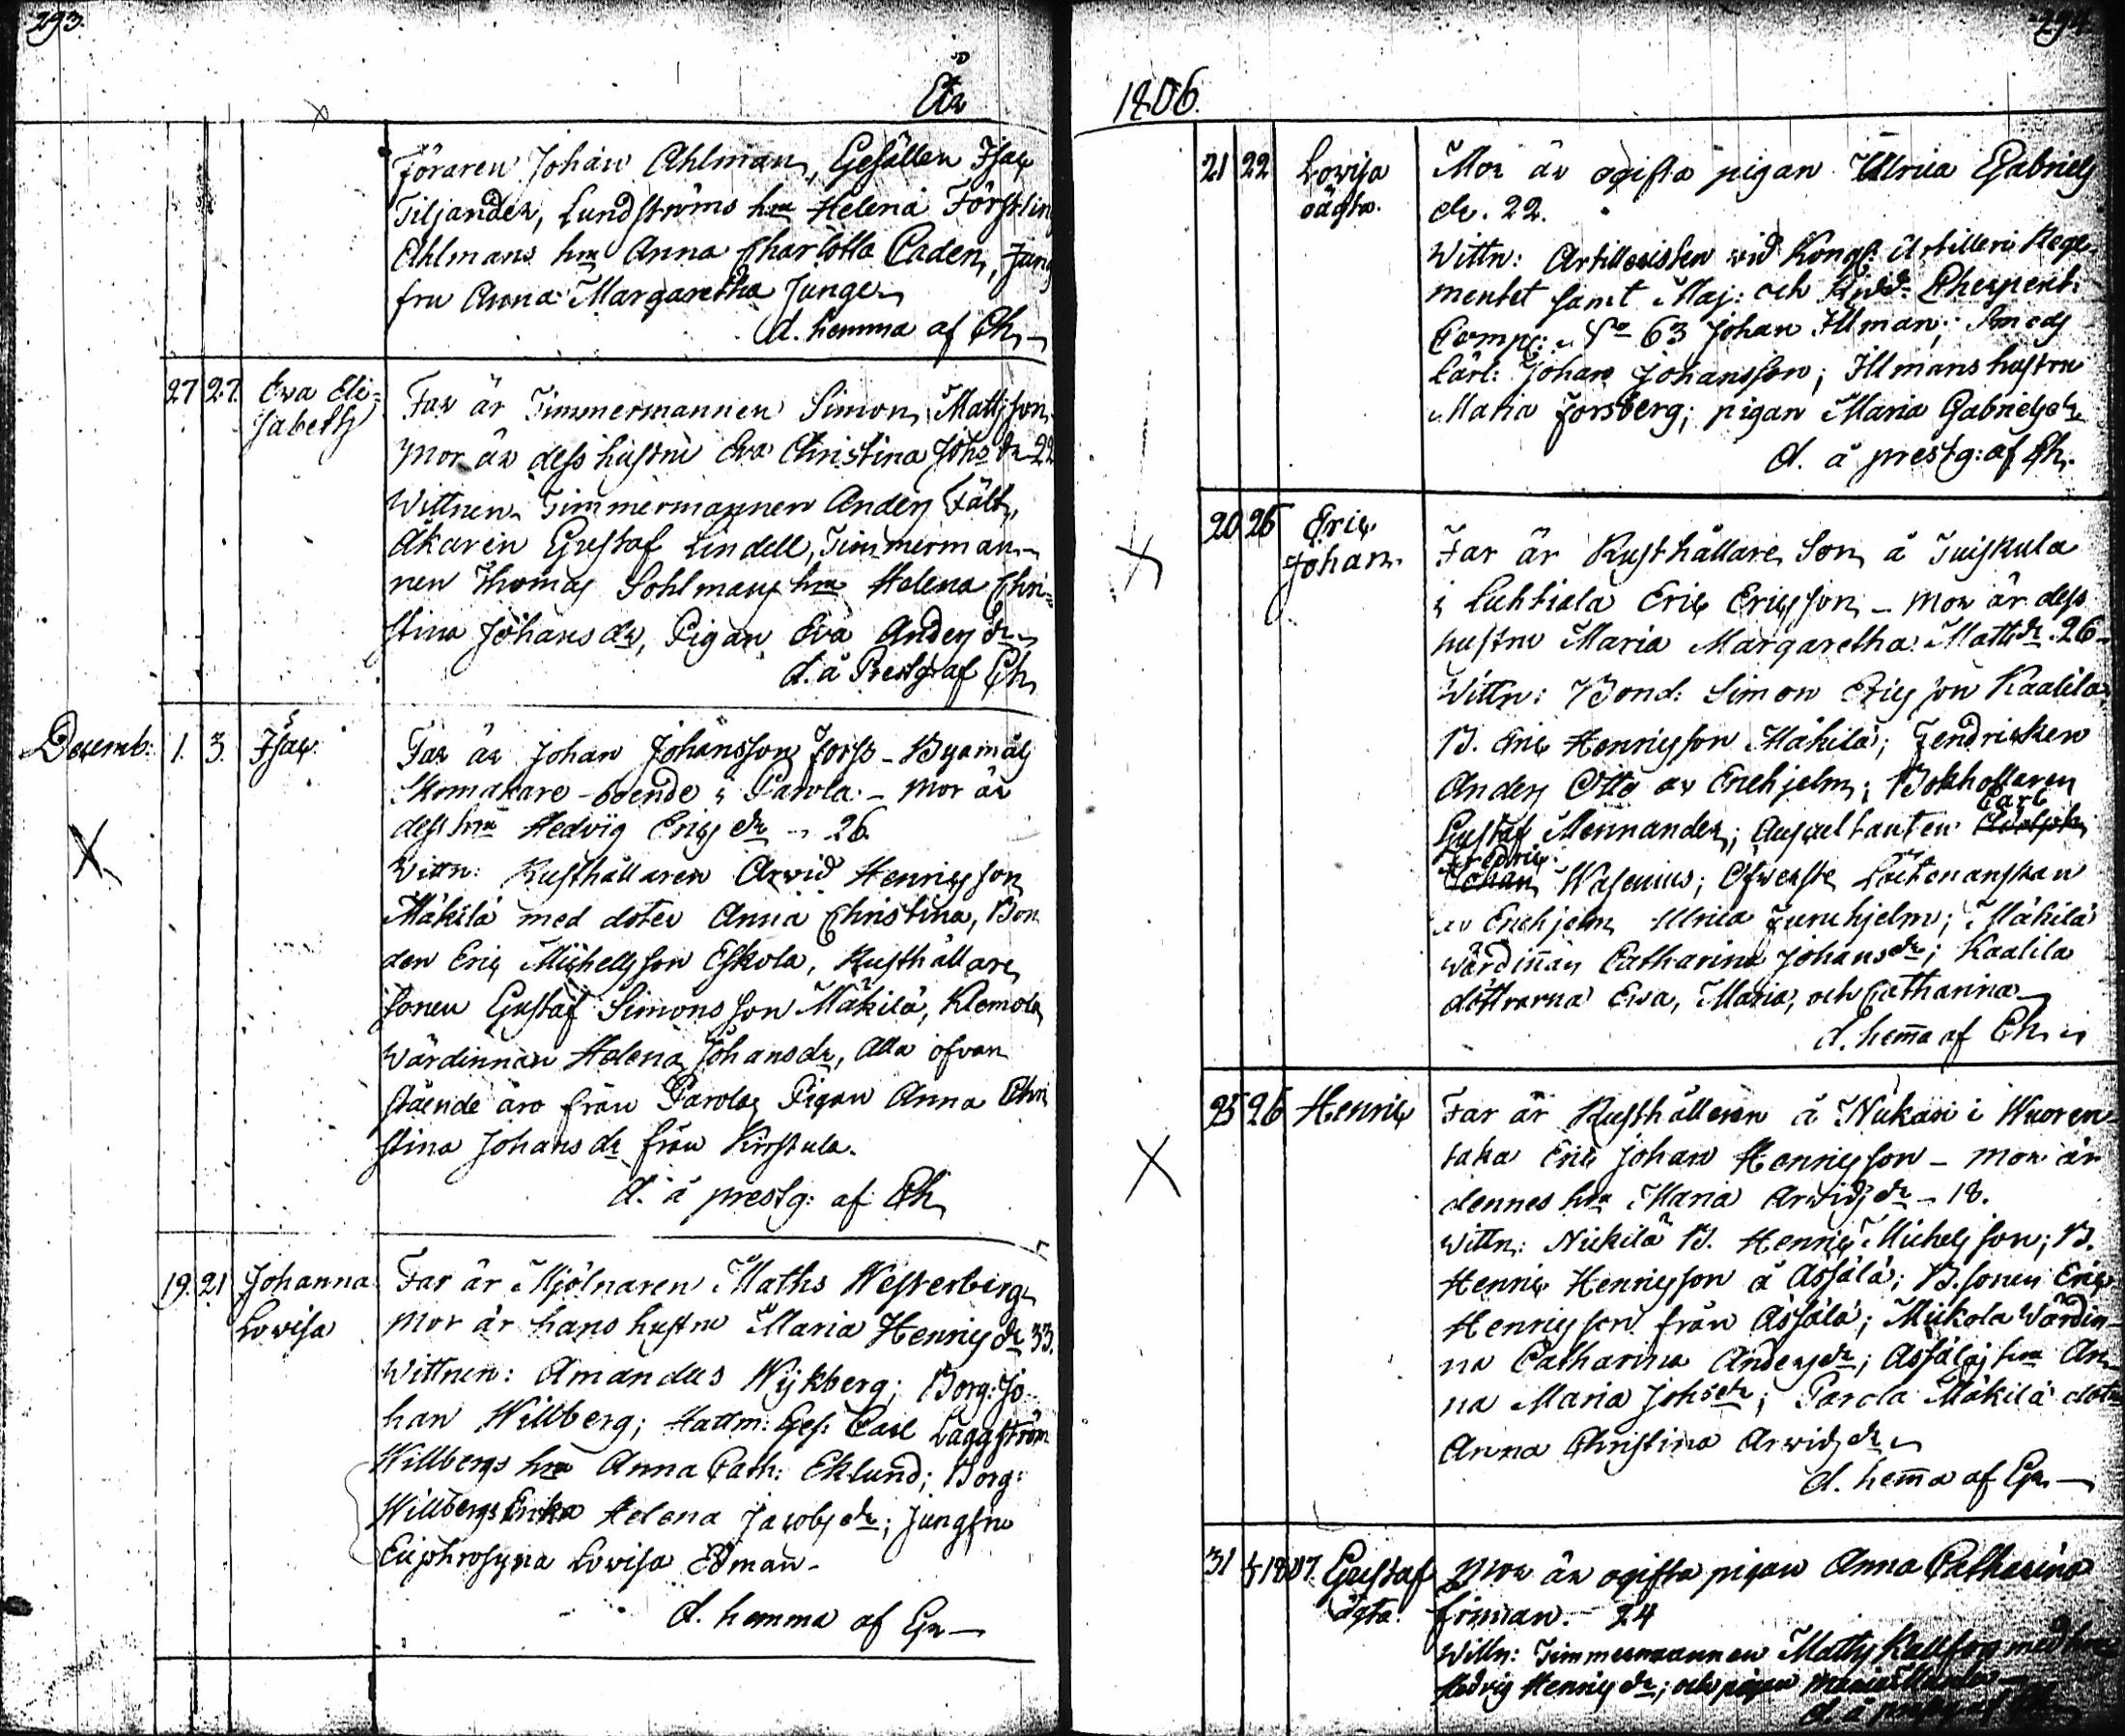 293.
År
Föraren Johan Ahlman, Gesällen Isac
Tiljander, Lundströms hru Helena Förstlin
Ahlmans hru Anna Charlotta Caden, Jung
fru Anna Margaretha Junge
d. hemma af Ch.
27 27 Eva Eli=
sabeth
Far är Timmermannen Simon Mattsson
Mor är dess hustru Eva Christina Johs dr 22
Wittnen Timmermannen Anders Fält,
Åkaren Gustaf Lindell, Timmerman-
nen Thomas Sohlmans hru Helena Chri=
stina Johans dr, Pigan Eva Anders dr
d. å Prestg af Ch
Decemb: 1. 3. Isac
Far är Johan Johansson Forss - Byamåls
Skomakare - boende i Parola - Mor är
dess hru Hedvig Erics dr - 26
Wittn: Rusthållaren Arvid Henricsson
Mäkilä med doter Anna Christina, Bon
den Eric Michellsson Eskola, Rusthållare
sonen Gustaf Simonsson Mäkilä, Klemola
wärdinnan Helena Johansdr, Alla ofvan
stående äro från Parola, Pigan Anna Chri
stina Johans dr från Kirstula.
d. å prestg: af Ch
19. 21 Johanna
Lovisa
Far är Mjölnaren Maths Westerberg
Mor är hans hustru Maria Henrics dr 33.
Wittnen: Amandus Wijkberg; Borg: Jo-
han Willberg; Hattm: Ges: Carl Laggström
Willbergs hru Anna Cath: Eklund; Borg:
Willbergs Enka Helena Jacobs dr; Jungfru
Euphrosyna Lovisa Edman -
d. hemma af Gr
294.
1806.
21 22 Lovisa
oägta.
Mor är ogifta pigan Ulrica Gabriels
dr. 22.
Wittn: Artilleristen vid Kongl: Artilleri Rege
mentet samt Maj: och Ridd:
Comp: No 63 Johan Illman; Smeds
Carl: Johan Johansson; Illmans hustru
Maria Forsberg; pigan Maria Gabrielsdr
d. å prestg: af Ch.
20 25 Eric
Johan.
Far är Rusthållare Son å Tuiskula
i Luhtiala Eric Ericsson - Mor är dess
hustru Maria Margaretha Matts dr. 26 -
Wittn: Bond: Simon Ericsson Kaalila,
B. Eric Henricsson Mäkilä; Fendricken
Anders Otto av Enehjelm; Bokhollaren
Gustaf Mennander; Auscultanten Carl
Fredric Wasenius; Öfwerste Löitenanskan
av Enehjelm Ulrica Jurnhjelm; Mäkilä
wärdinnan Catharina Johansdr; Kaalila
döttrarna Eva, Maria, och Catharina
d. hemma af Ch
25 26 Henric
Far är Rusthålleren å Nukari i Wuoren=
taka Eric Johan Henricsson - Mor är
dennes hru Maria Arvids dr - 18.
Wittn: Nickilä B. Henric Michelsson; B.
Henric Henricsson å Assälä; B. sonen Eric
Henricsson från Assälä; Mickola Wärdin-
na Catharina Andersdr; Assäläs hru An-
na Maria Johsdr; Parola Mäkilä dotr
Anna Christina Arvids dr
d. hemma af Gr
31 1807. Gustaf
oägta.
Mor är ogifta pigan Anna Catharina
Finman. - 24
Wittn: Timmermannen Matts Kallsson med hru
Hedvig Henrics dr; och pigan Maria
d. å